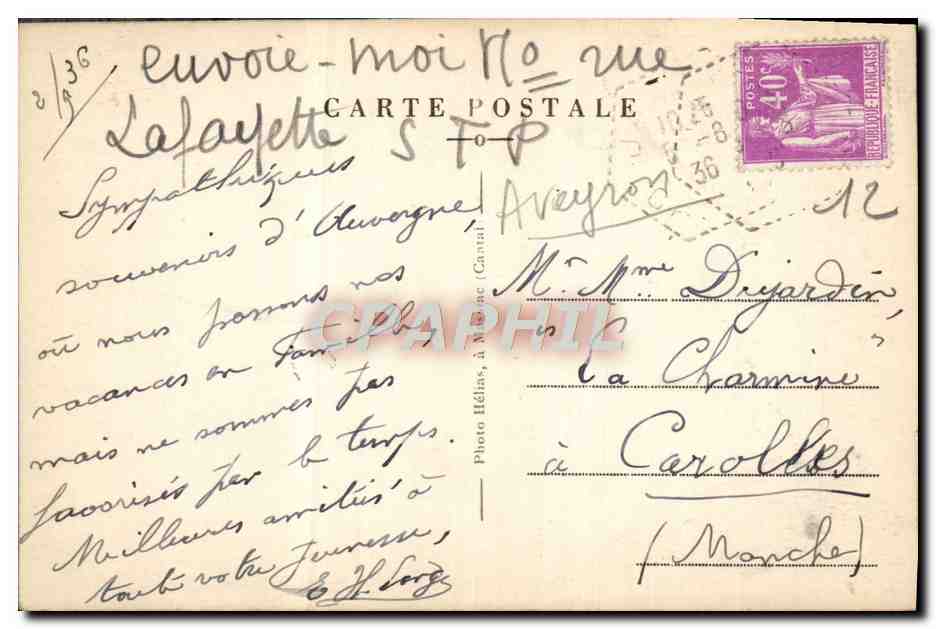 envoie-moi No rue
Lafayette S T P
CARTE POSTALE
POSTES
40c
REPUBLIQUE FRANÇAISE
8
36
Aveyron
12
Sympathiques
souvenirs d'Auvergne,
où nous passons nos
vacances en famille,
mais ne sommes pas
favorisés par le temps.
Meilleures amitiés à
toute votre jeunesse,
Photo Hélias, à (Cantal)
Mr. Mme Dujardin,
La Charmine
à Carolles
(Manche)
CPAPHIL